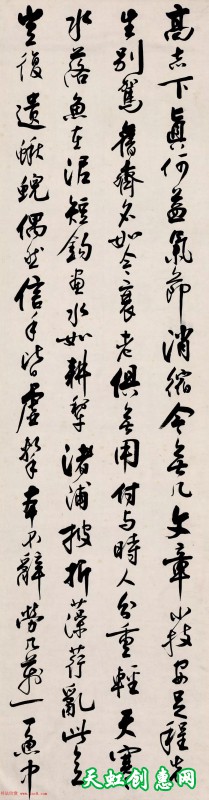 高志下真何益氣節消縮今無幾文章小技安足程先
生別駕舊齊名如今衰老俱無用付与時人分重輕天寒
水落魚在泥短鉤畫水如耕犁渚蒲披折藻荇亂此意
豈復遺鰍鯢偶然信手皆虛擊本不辭勞幾萬一一魚中
天虹创意网